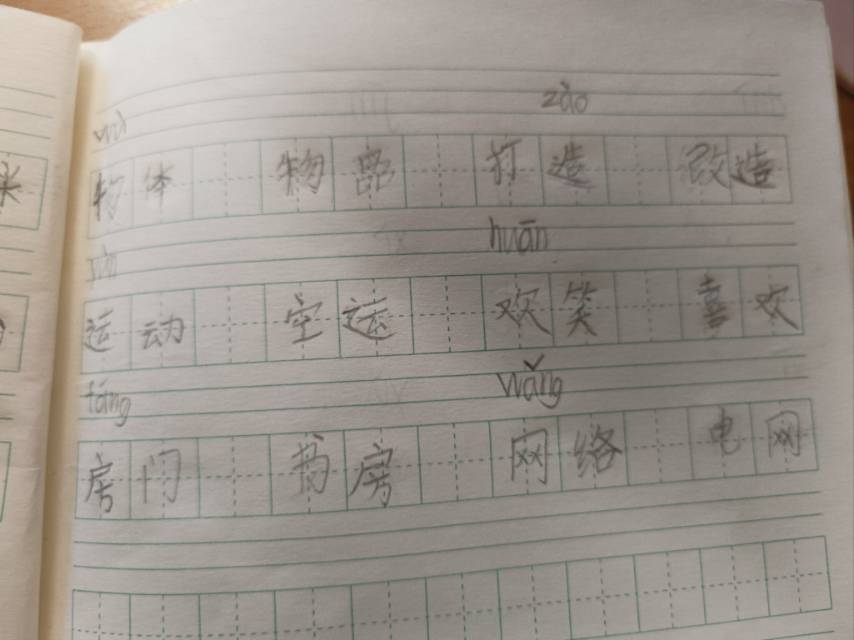 wù zào
物体 物品 打造 改造
huān
运动 空运 欢笑 喜欢
fáng wǎng
房门 书房 网络 电网